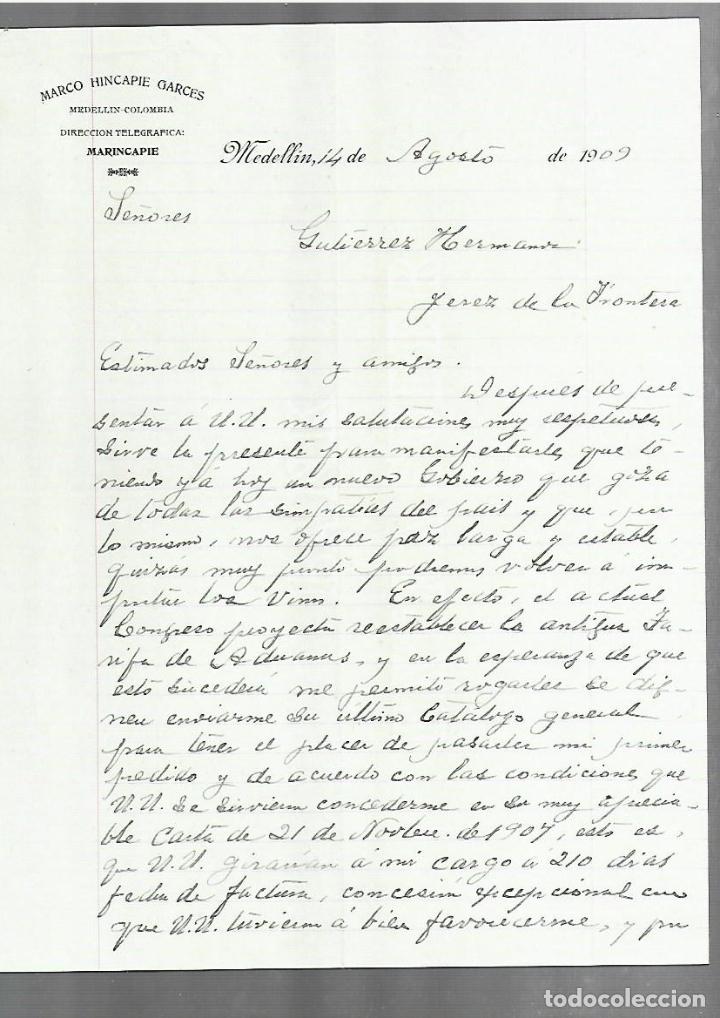 MARCO HINCAPIE GARCES
MEDELLIN-COLOMBIA
DIRECCION TELEGRAFICA:
MARINCAPIE
Medellin, 14 de Agosto de 1909
Señores
Gutiérrez Hermanos
Jerez de la Frontera
Estimados Señores y amigos.
Después de pre-
sentar á U.U. mis salutaciones muy respetuosas,
sirve la presente para manifestarles que te-
niendo yá hoy un nuevo Gobierno que goza
de todas las simpatías del pais y que, por
lo mismo, nos ofrece paz larga y estable,
quizás muy pronto podremos volver á im-
portar los vinos. En efecto, el actual
Congreso proyecta reestablecer la antigua Ta-
rifa de Aduanas, y en la esperanza de que
esto sucederá me permito rogarles se dig-
nen enviarme su último Catálogo general
para tener el placer de pasarles mi primer
pedido y de acuerdo con las condiciones que
U.U. se sirvieron concederme en su muy aprecia-
ble carta de 21 de Novbre. de 1907, esto es,
que U.U. girarían á mi cargo á 210 dias
fecha de factura, concesión excepcional con
que U.U. tuvieron á bien favorecerme, y por
todocoleccion